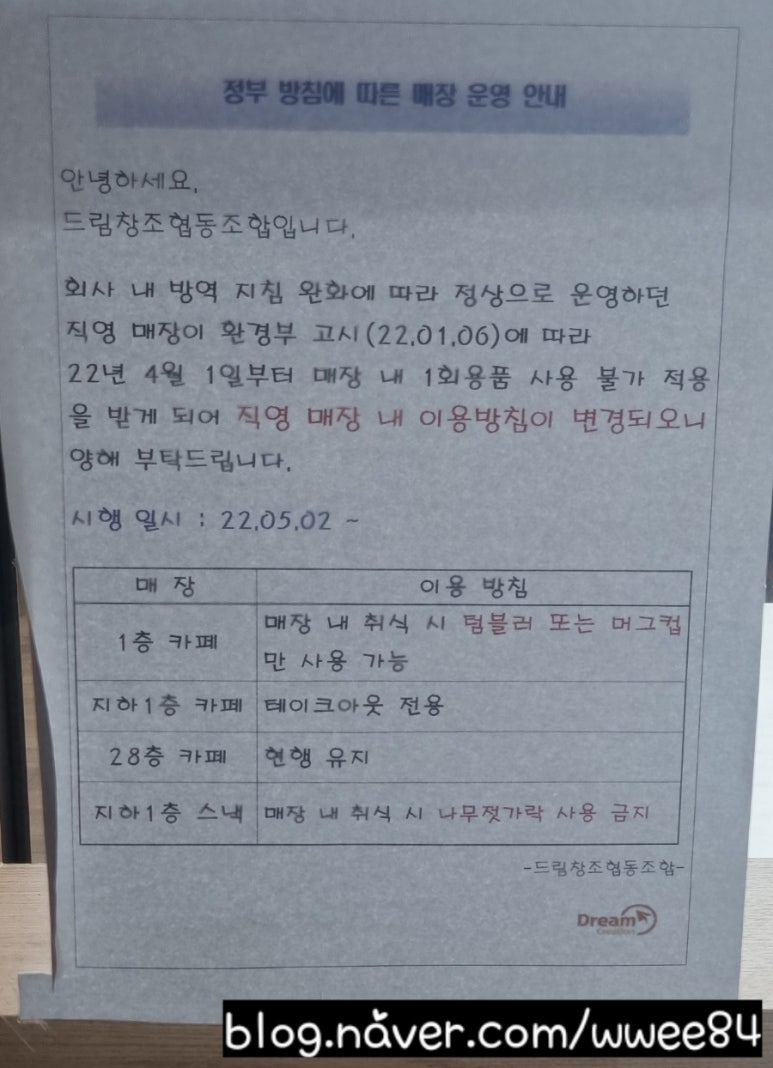 정부 방침에 따른 매장 운영 안내
안녕하세요,
드림창조협동조합입니다.
회사 내 방역 지침 완화에 따라 정상으로 운영하던
직영 매장이 환경부 고시(22.01.06)에 따라
22년 4월 1일부터 매장 내 1회용품 사용 불가 적용
을 받게 되어 직영 매장 내 이용방침이 변경되오니
양해 부탁드립니다.
시행 일시 : 22.05.02 ~
매 장 이용 방침
1층 카페 매장 내 취식 시 텀블러 또는 머그컵
만 사용 가능
지하1층 카페 테이크아웃 전용
28층 카페 현행 유지
지하1층 스낵 매장 내 취식 시 나무젓가락 사용 금지
-드림창조협동조합-
Dream
Creation
blog.naver.com/wwee84